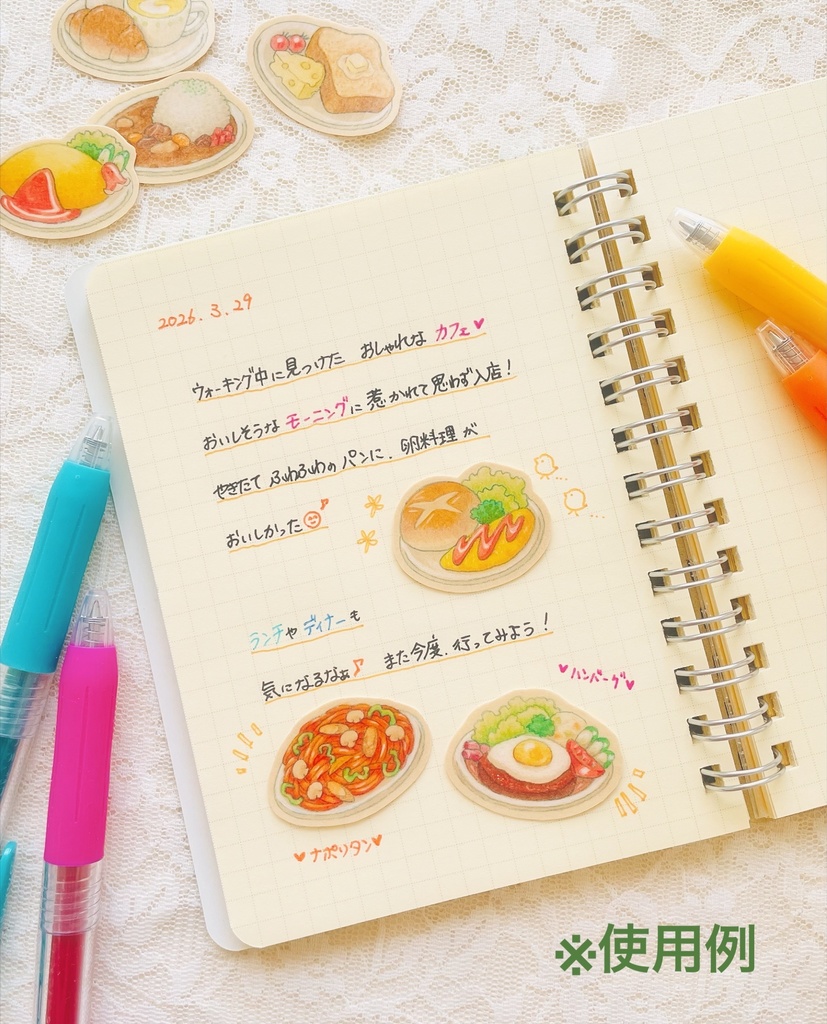 2026.3.29
ウォーキング中に見つけた おしゃれな カフェ♥
おいしそうな モーニングに 惹かれて思わず入店！
やきたて ふわふわの パンに、卵料理 が
おいしかった
ランチや ディナーも
気になるなぁ♪ また今度、行ってみよう！
♥ハンバーグ♥
♥ナポリタン♥
※使用例